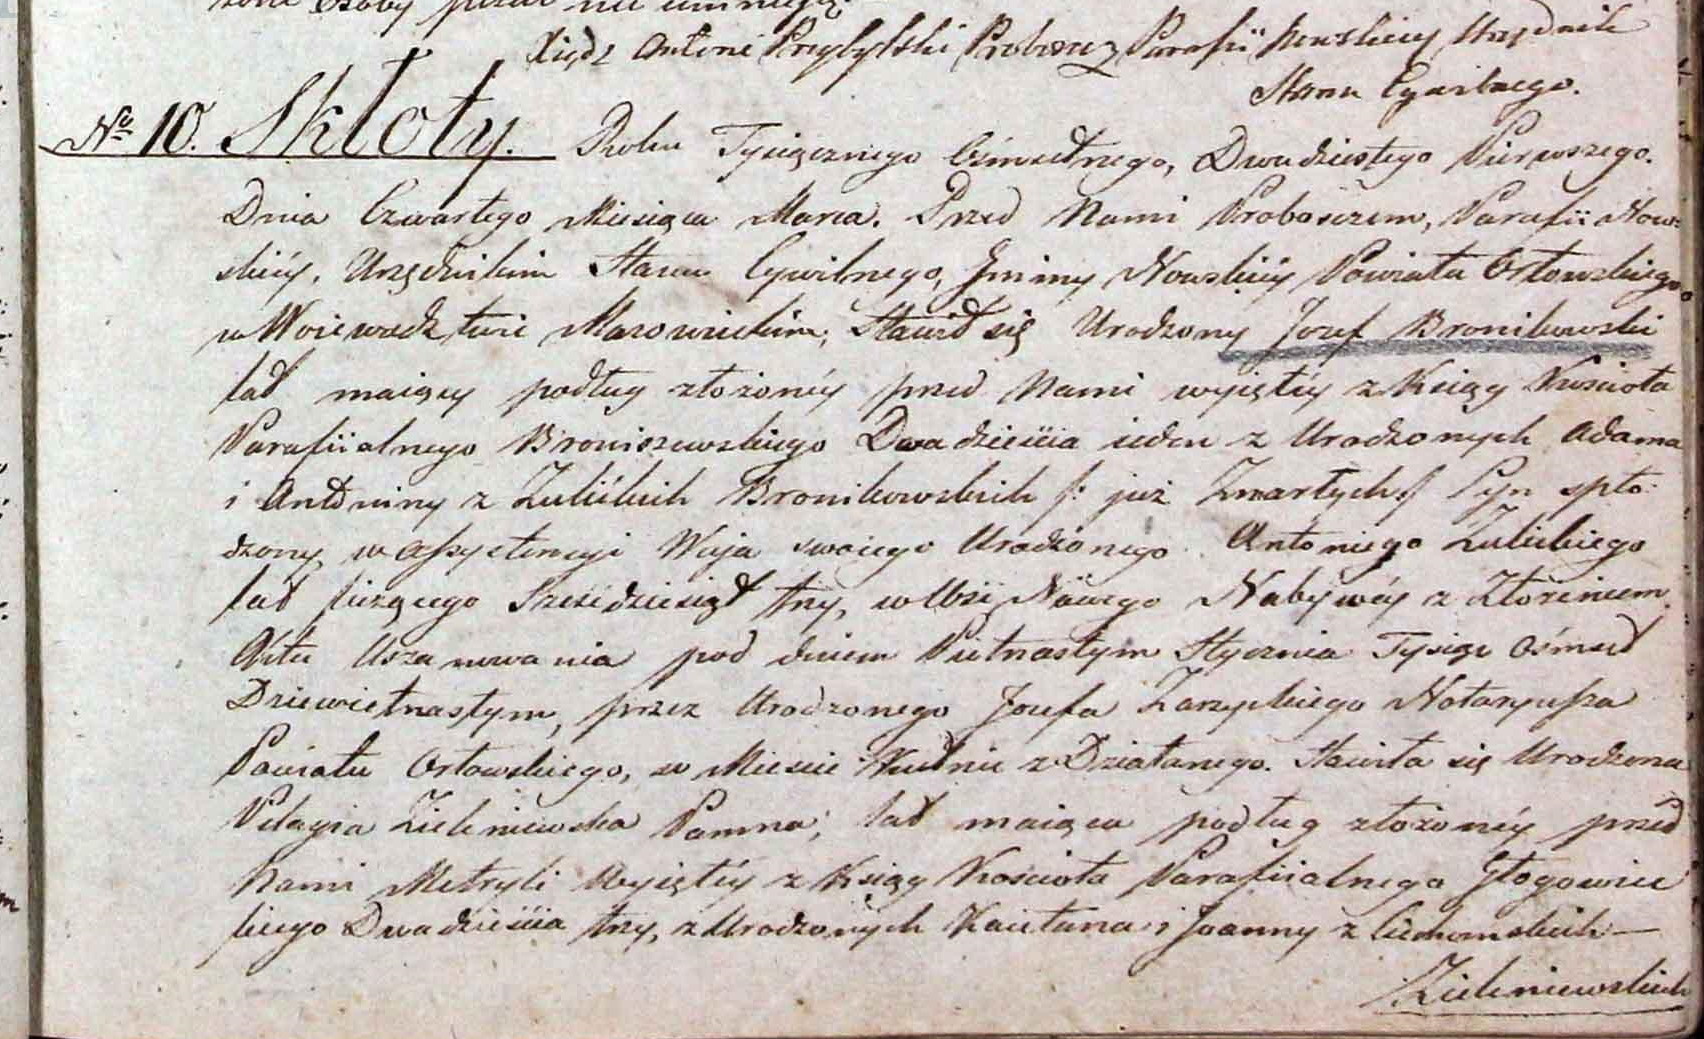 Osoby pisać nie umnieją.
Xiądz Antoni Przybylski Proboszcz Parafii Urzędnik
Stanu Cywilnego.
No 10. Skłoty. Roku Tysięcznego Ośmsetnego, Dwudziestego Pierwszego.
Dnia Czwartego Miesiąca Marca. Przed Nami Proboszczem, Parafii Now=
skiéy, Urzędnikiem Stanu Cywilnego, Gminy Nowskiéy Powiatu Orłowskiego
w Woiewodztwie Mazowieckim; Stawił się Urodzony Jozef Bronikowski
lat maiący podług złożonéy przed Nami wyiętéy z Księgi Kościoła
Parafiialnego Broniszewskiego Dwadzieścia ieden z Urodzonych Adama
i Antoniny z Zulickich Bronikowskich /: już Zmarłych :/ Syn spło=
dzony, w assystencyi Wuja swoiego Urodzonego Antoniego Zulickiego
lat liczącego Sześćdziesiąt trzy, w Wsi Nabywéy z Złożeniem
Aktu Uszanowania pod dniem Piętnastym Stycznia Tysiąc Ośmset
Dziewietnastym, przez Urodzonego Jozefa Zarzyckiego Notaryusza
Powiatu Orłowskiego, w Miescie Kutnie z Działanego. Stawiła się Urodzona
Pelagia Zieleniewska Panna; lat maiąca podług złożonéy przed
Nami Metryki Wyiętéy z Księgi Kościoła Parafiialnego Głogowiec
kiego Dwadzieścia trzy, z Urodzonych Kaietana i Joanny z Cichomskich —
Zieleniewskich